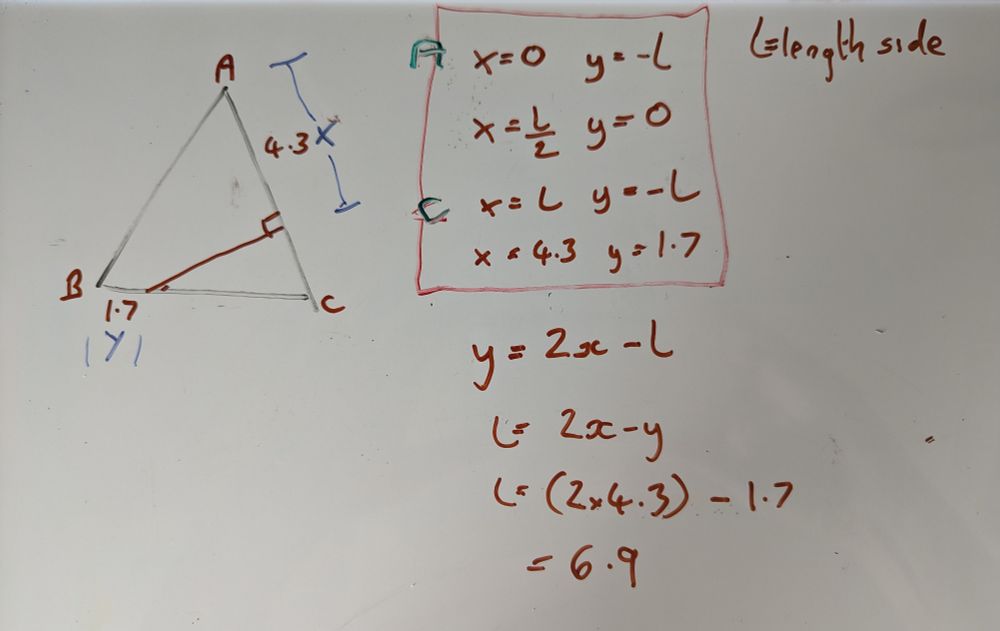 A
4.3 X
B
1.7
C
|Y|
L=length side
A x=0 y=-L
x=L/2 y=0
C x=L y=-L
x=4.3 y=1.7
y=2x-L
L=2x-y
L=(2x4.3)-1.7
=6.9